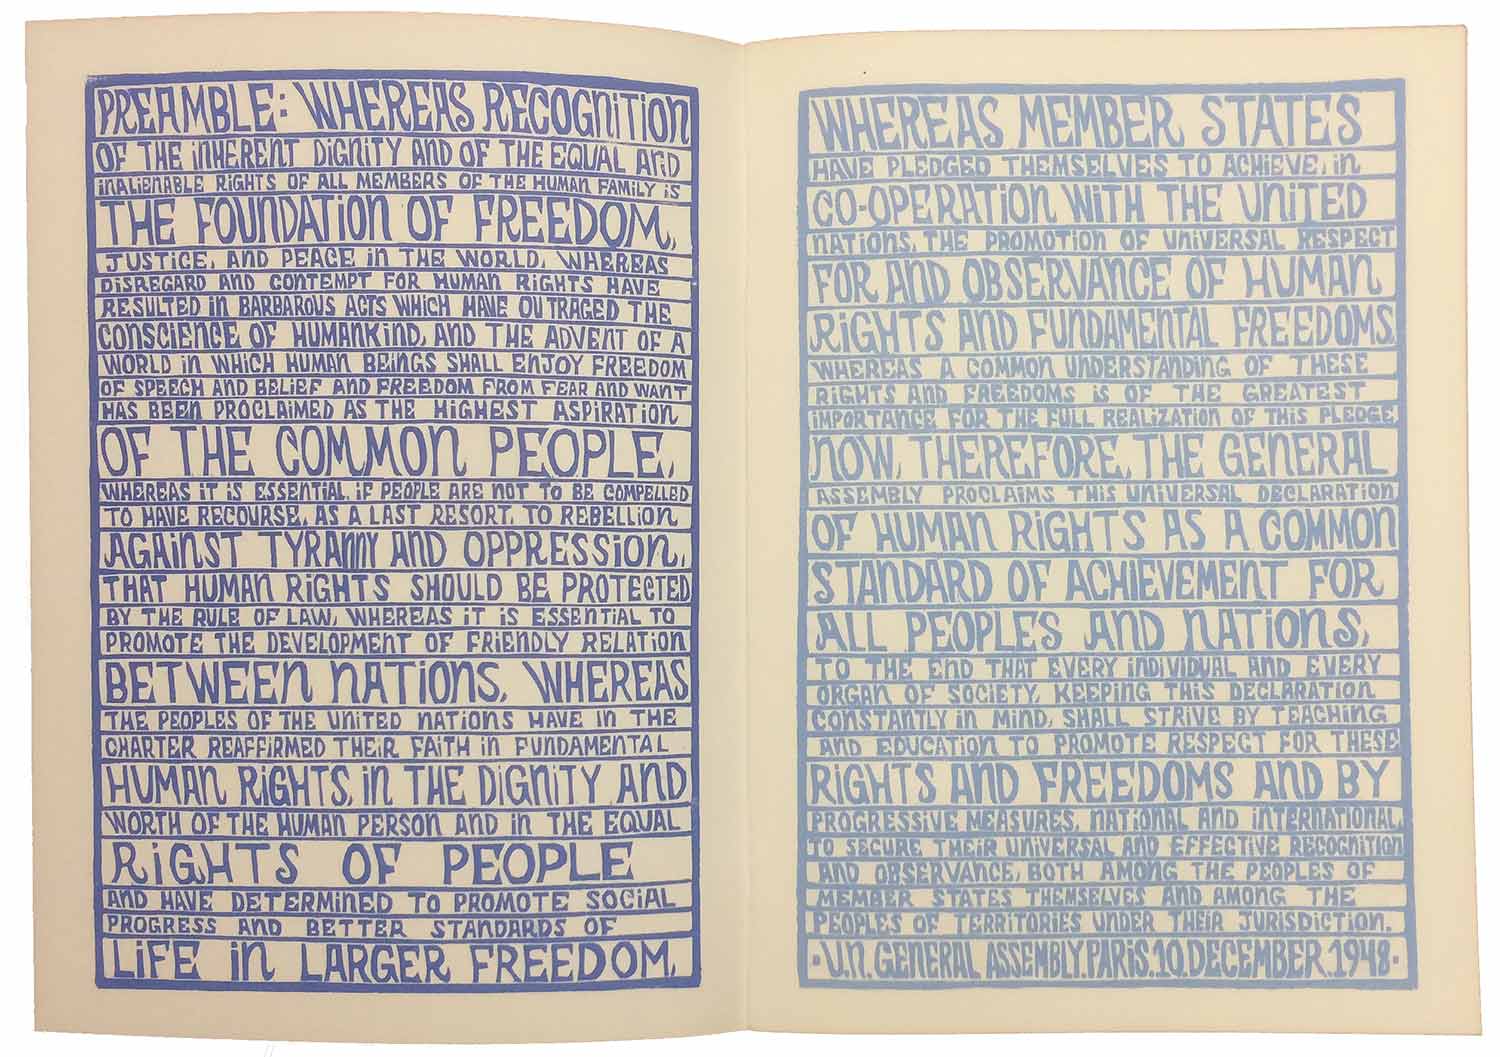 PREAMBLE: WHEREAS RECOGNITION
OF THE INHERENT DIGNITY AND OF THE EQUAL AND
INALIENABLE RIGHTS OF ALL MEMBERS OF THE HUMAN FAMILY IS
THE FOUNDATION OF FREEDOM,
JUSTICE, AND PEACE IN THE WORLD, WHEREAS
DISREGARD AND CONTEMPT FOR HUMAN RIGHTS HAVE
RESULTED IN BARBAROUS ACTS WHICH HAVE OUTRAGED THE
CONSCIENCE OF HUMANKIND, AND THE ADVENT OF A
WORLD IN WHICH HUMAN BEINGS SHALL ENJOY FREEDOM
OF SPEECH AND BELIEF AND FREEDOM FROM FEAR AND WANT
HAS BEEN PROCLAIMED AS THE HIGHEST ASPIRATION
OF THE COMMON PEOPLE,
WHEREAS IT IS ESSENTIAL, IF PEOPLE ARE NOT TO BE COMPELLED
TO HAVE RECOURSE, AS A LAST RESORT, TO REBELLION
AGAINST TYRANNY AND OPPRESSION,
THAT HUMAN RIGHTS SHOULD BE PROTECTED
BY THE RULE OF LAW, WHEREAS IT IS ESSENTIAL TO
PROMOTE THE DEVELOPMENT OF FRIENDLY RELATION
BETWEEN NATIONS, WHEREAS
THE PEOPLES OF THE UNITED NATIONS HAVE IN THE
CHARTER REAFFIRMED THEIR FAITH IN FUNDAMENTAL
HUMAN RIGHTS, IN THE DIGNITY AND
WORTH OF THE HUMAN PERSON AND IN THE EQUAL
RIGHTS OF PEOPLE
AND HAVE DETERMINED TO PROMOTE SOCIAL
PROGRESS AND BETTER STANDARDS OF
LIFE IN LARGER FREEDOM,
WHEREAS MEMBER STATES
HAVE PLEDGED THEMSELVES TO ACHIEVE, IN
CO-OPERATION WITH THE UNITED
NATIONS, THE PROMOTION OF UNIVERSAL RESPECT
FOR AND OBSERVANCE OF HUMAN
RIGHTS AND FUNDAMENTAL FREEDOMS,
WHEREAS A COMMON UNDERSTANDING OF THESE
RIGHTS AND FREEDOMS IS OF THE GREATEST
IMPORTANCE FOR THE FULL REALIZATION OF THIS PLEDGE,
NOW, THEREFORE, THE GENERAL
ASSEMBLY PROCLAIMS THIS UNIVERSAL DECLARATION
OF HUMAN RIGHTS AS A COMMON
STANDARD OF ACHIEVEMENT FOR
ALL PEOPLES AND NATIONS,
TO THE END THAT EVERY INDIVIDUAL AND EVERY
ORGAN OF SOCIETY, KEEPING THIS DECLARATION
CONSTANTLY IN MIND, SHALL STRIVE BY TEACHING
AND EDUCATION TO PROMOTE RESPECT FOR THESE
RIGHTS AND FREEDOMS AND BY
PROGRESSIVE MEASURES, NATIONAL AND INTERNATIONAL,
TO SECURE THEIR UNIVERSAL AND EFFECTIVE RECOGNITION
AND OBSERVANCE, BOTH AMONG THE PEOPLES OF
MEMBER STATES THEMSELVES AND AMONG THE
PEOPLES OF TERRITORIES UNDER THEIR JURISDICTION.
·U.N. GENERAL ASSEMBLY. PARIS. 10. DECEMBER. 1948·